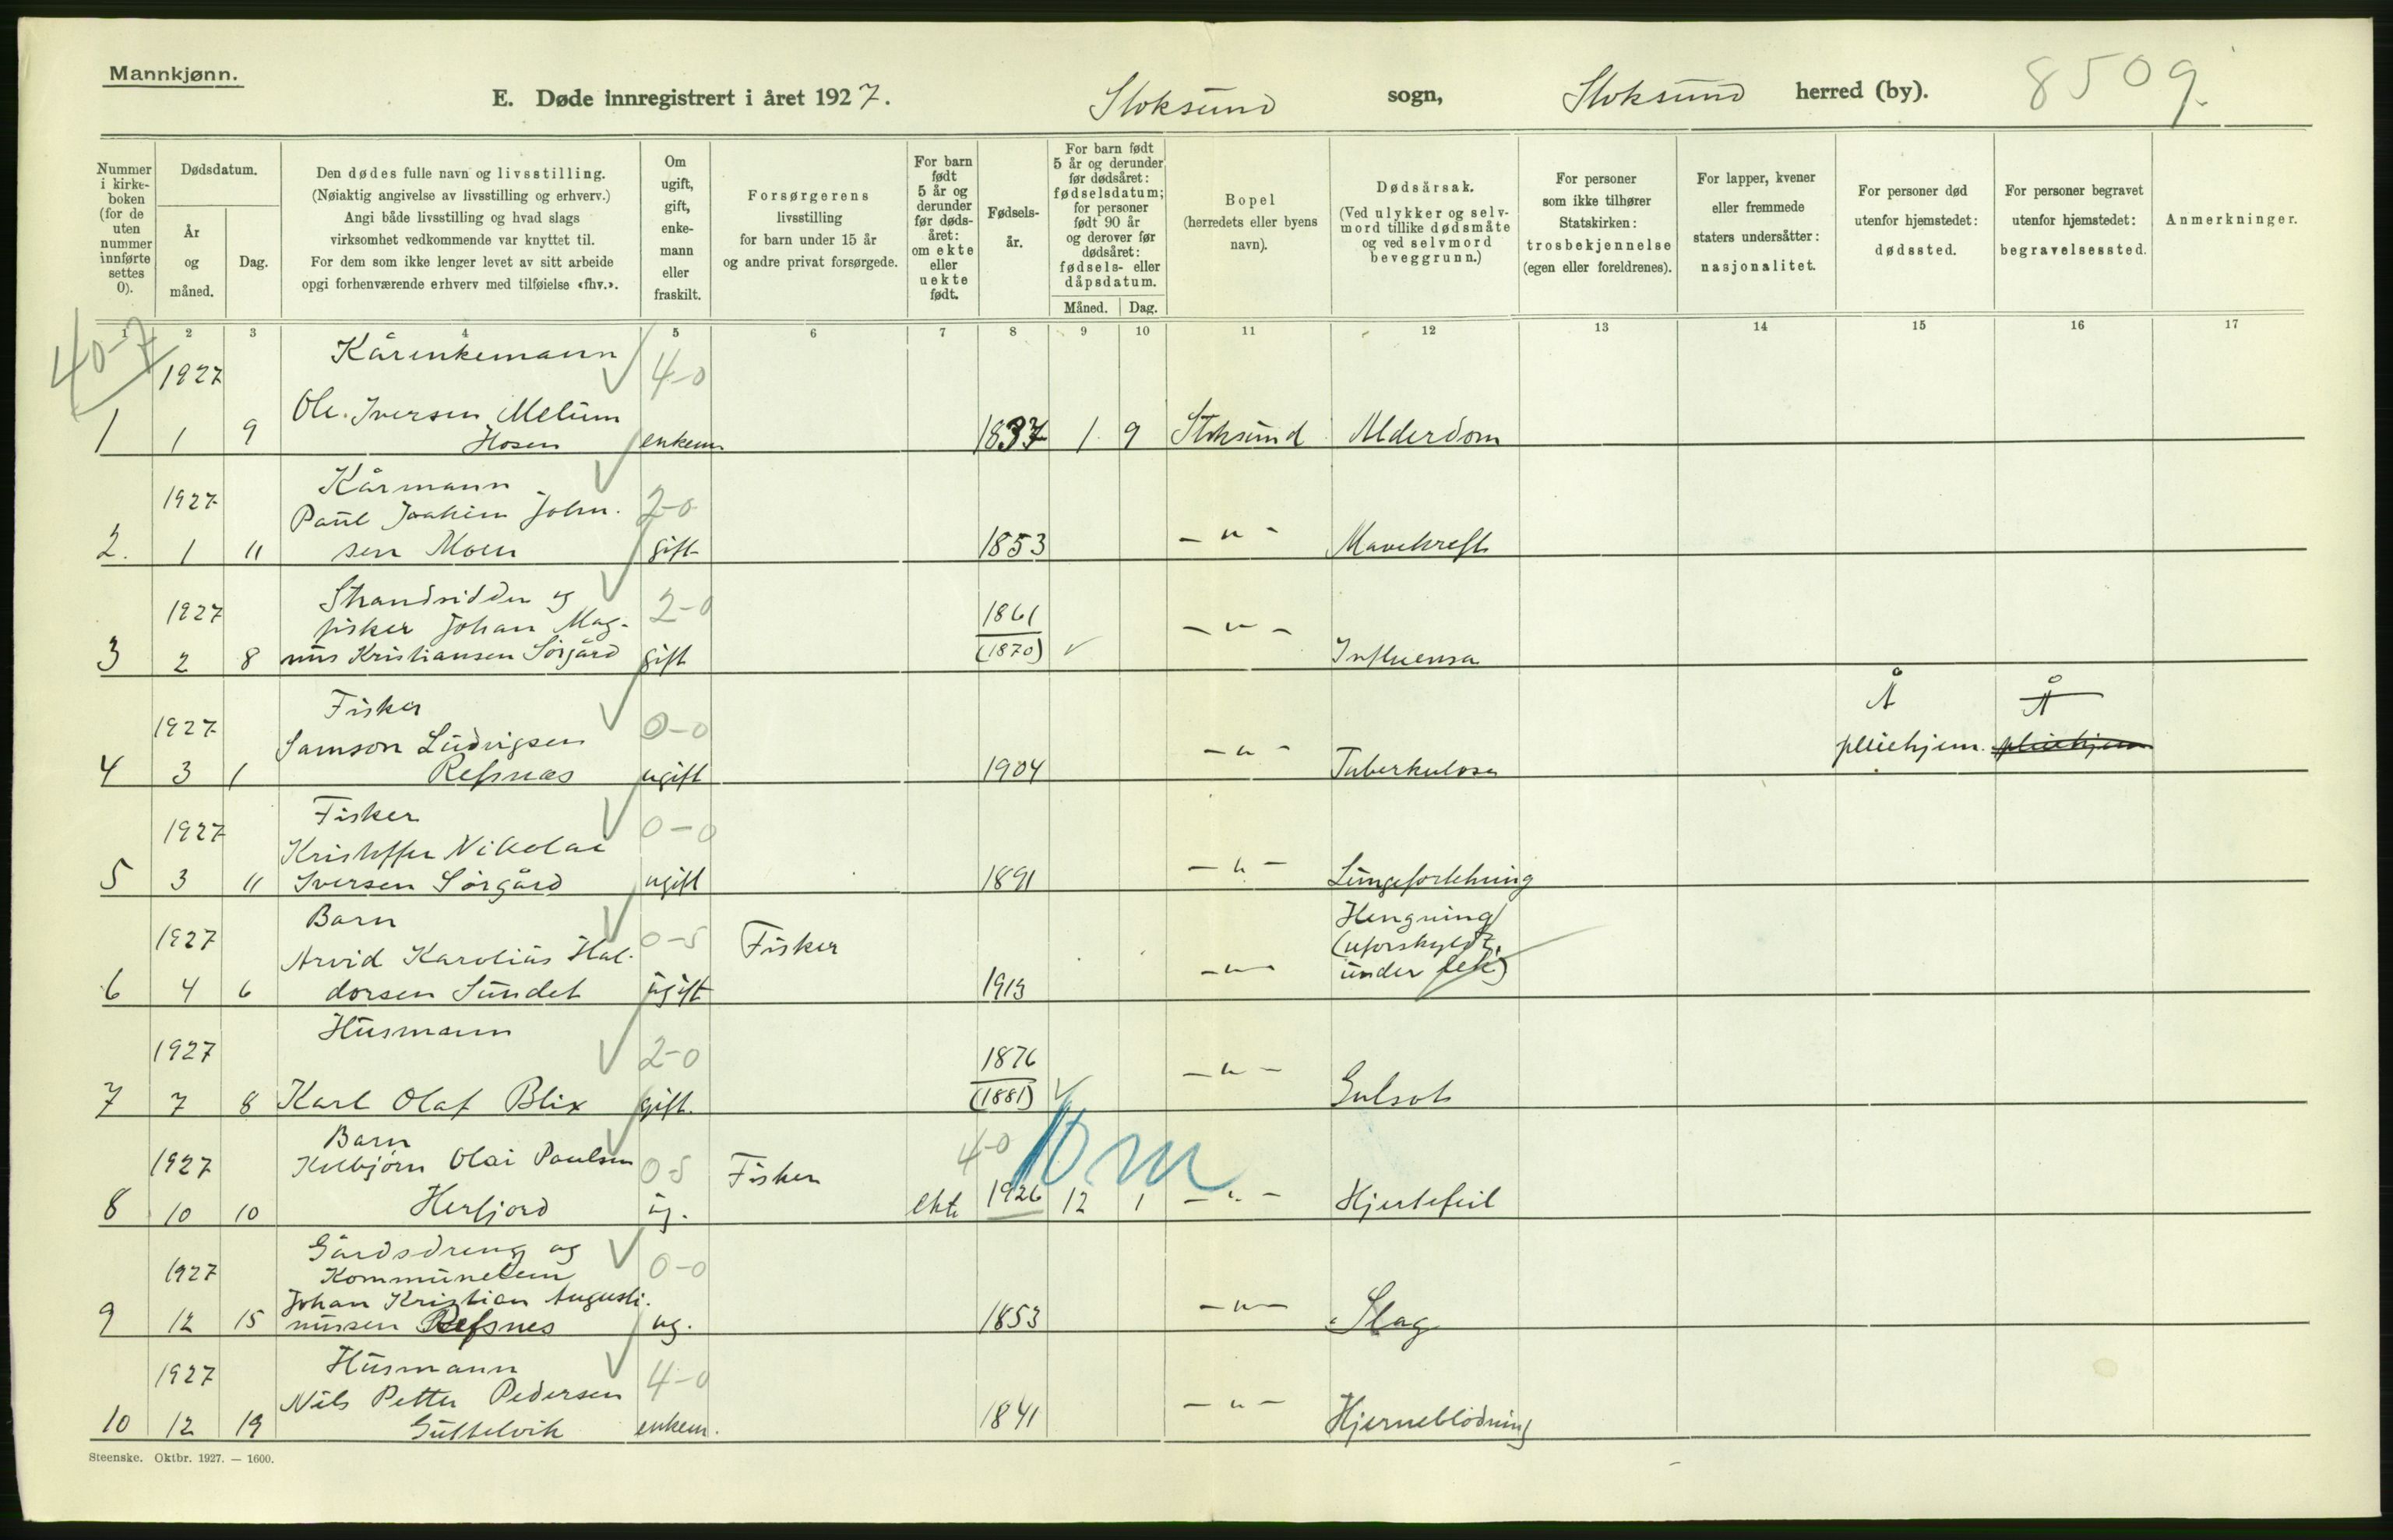 Mannkjønn.
E. Døde innregistrert i året 1927. Stoksund sogn, Stoksund herred (by). 8509.
Nummer i kirkeboken (for de uten nummer innførte settes 0).
Dødsdatum.
År og måned.
Dag.
Den dødes fulle navn og livsstilling.
(Nøiaktig angivelse av livsstilling og erhverv.)
Angi både livsstilling og hvad slags
virksomhet vedkommende var knyttet til.
For dem som ikke lenger levet av sitt arbeide
opgi forhenværende erhverv med tilføielse «fhv.».
Om ugift, gift, enkemann eller fraskilt.
Forsørgerens
livsstilling
for barn under 15 år
og andre privat forsørgede.
For barn født 5 år og derunder før dødsåret: om ekte eller uekte født.
Fødselsår.
For barn født 5 år og derunder før dødsåret: fødselsdatum; for personer født 90 år og derover før dødsåret: fødsels- eller dåpsdatum.
Måned. Dag.
Bopel
(herredets eller byens navn).
Dødsårsak.
(Ved ulykker og selvmord tillike dødsmåte og ved selvmord beveggrunn.)
For personer som ikke tilhører Statskirken: trosbekjennelse (egen eller foreldrenes).
For lapper, kvener eller fremmede staters undersåtter: nasjonalitet.
For personer død utenfor hjemstedet: dødssted.
For personer begravet utenfor hjemstedet: begravelsessted.
Anmerkninger.
1 2 3 4 5 6 7 8 9 10 11 12 13 14 15 16 17
40-7
1927 Kårenkemann 4-0
Ole Iversen Melum
1 1 9 Hosen enkem. 1837 1 9 Stoksund Alderdom
1927 Kårmann
Paul Joakim John- 2-0
2. 1 11 sen Moen gift 1853 - " - Mavekreft
1927 Strandsidder og 2-0
fisker Johan Mag- 1861
3 2 8 nus Kristiansen Sørgård gift (1870) - " - Influensa
1927 Fisker 0-0 Å Å
Samson Ludvigsen pleiehjem. pleiehjem
4 3 1 Refsnæs ugift 1904 - " - Tuberkulose
1927 Fisker 0-0
Kristoffer Nikolai
5 3 11 Iversen Sørgård ugift 1891 - " - Lungefortehning
Barn Hengning
1927 Arvid Karolius Hal- 0-5 Fisker (uforskyldt,
6 4 6 dorsen Sundet ugift 1913 - " - under lek)
Husmann
1927 2-0 1876
7 7 8 Karl Olaf Blix gift. (1881) - " - Gulsot
Barn
1927 Kolbjørn Olai Paulsen 0-5 Fisker 4-0 10 m
8 10 10 Herfjord ug. ekte 1926 12 1 - " - Hjertefeil
Gårdsdreng og
1927 Kommunelem 0-0
Johan Kristian Augusti-
9 12 15 nussen Refsnes ug. 1853 - " - Slag
1927 Husmann 4-0
Nils Petter Pedersen
10 12 19 Guttelvik enkem. 1841 - " - Hjerneblødning
Steenske. Oktbr. 1927. — 1600.